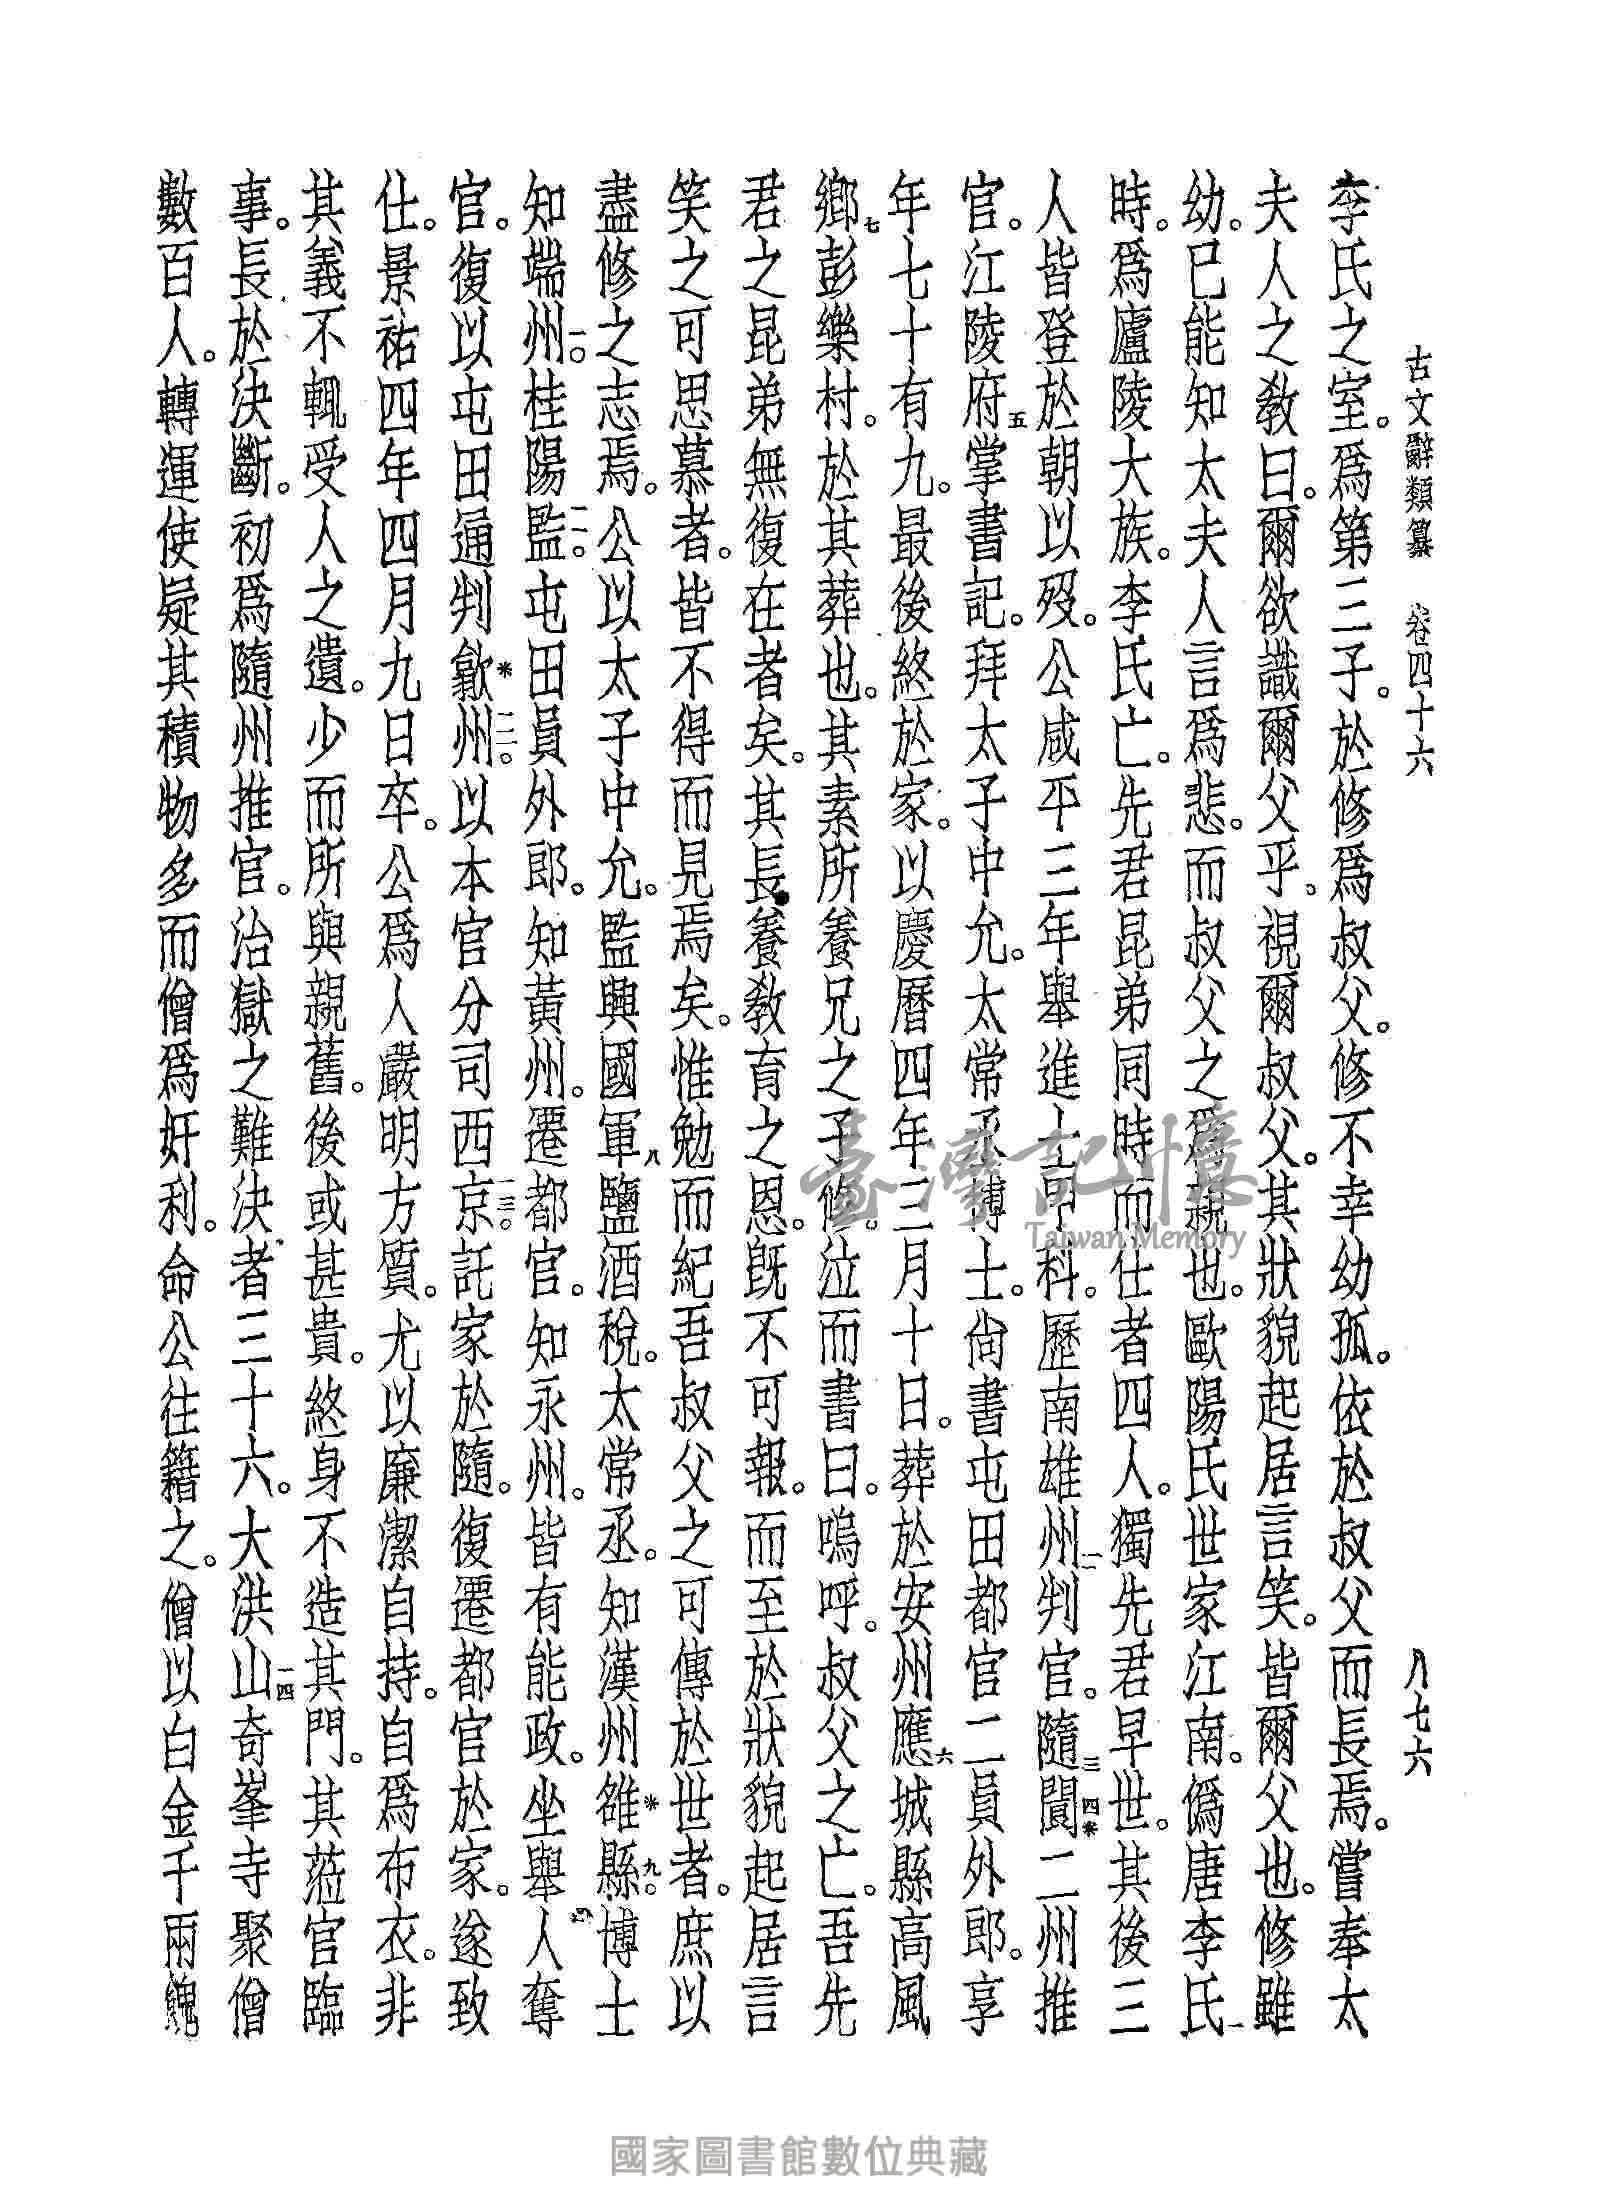 古文辭類纂　卷四十六　八七六
李氏之室。爲第三子。於修爲叔父。修不幸幼孤。依於叔父而長焉。嘗奉太
夫人之教曰。爾欲識爾父乎。視爾叔父。其狀貌起居言笑。皆爾父也。修雖
幼。已能知太夫人言爲悲。而叔父之爲親也。歐陽氏世家江南。僞唐李氏一
時。爲廬陵大族。李氏亡。先君昆弟同時而仕者四人。獨先君早世。其後三
人皆登於朝以歿。公咸平三年舉進士甲科。歷南雄州二判官。隨三閬四※二州推
官。江陵府五掌書記。拜太子中允。太常丞博士。尙書屯田都官二員外郎。享
年七十有九。最後終於家。以慶曆四年三月十日。葬於安州應六城縣高風
鄉七彭樂村。於其葬也。其素所養兄之子修。泣而書曰。嗚呼。叔父之亡。吾先
君之昆弟無復在者矣。其長養教育之恩。既不可報。而至於狀貌起居言
笑之可思慕者。皆不得而見焉矣。惟勉而紀吾叔父之可傳於世者。庶以
盡修之志焉。公以太子中允。監興國軍八鹽酒稅。太常丞。知漢州雒※縣九。博士
知端州一〇。桂陽監一一。屯田員外郎。知黃州。遷都官。知永州。皆有能政。坐舉人※奪
官。復以屯田通判歙※州一二。以本官分司西京一三。託家於隨。復遷都官於家。遂致
仕。景祐四年四月九日卒。公爲人嚴明方質。尤以廉潔自持。自爲布衣。非
其義不輒受人之遺。少而所與親舊。後或甚貴。終身不造其門。其蒞官臨
事。長於決斷。初爲隨州推官。治獄之難決者三十六。大洪山一四奇峯寺聚僧
數百人。轉運使疑其積物多而僧爲奸利。命公往籍之。僧以白金千兩餽
臺灣記憶
Taiwan Memory
國家圖書館數位典藏